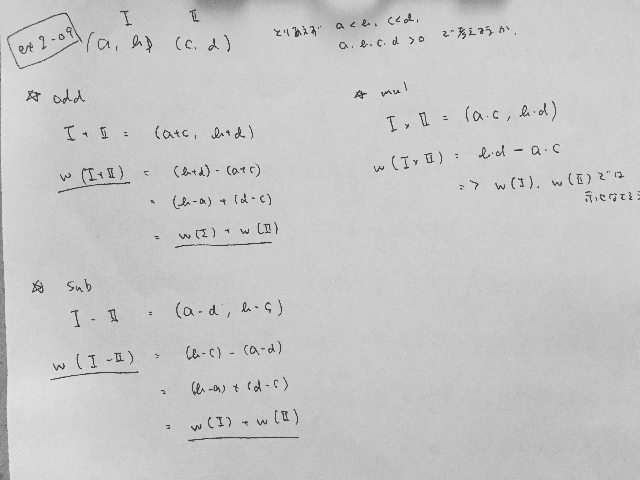 I II
ex 2-09 (a, b) (c, d)
とりあえず a < b, c < d,
a, b, c, d > 0 で考えようか.
☆ add
I + II = (a+c, b+d)
w (I+II) = (b+d) - (a+c)
= (b-a) + (d-c)
= w(I) + w(II)
☆ sub
I - II = (a-d, b-c)
w (I-II) = (b-c) - (a-d)
= (b-a) + (d-c)
= w(I) + w(II)
☆ mul
I × II = (a・c, b・d)
w (I×II) = b・d - a・c
=> w(I), w(II) では